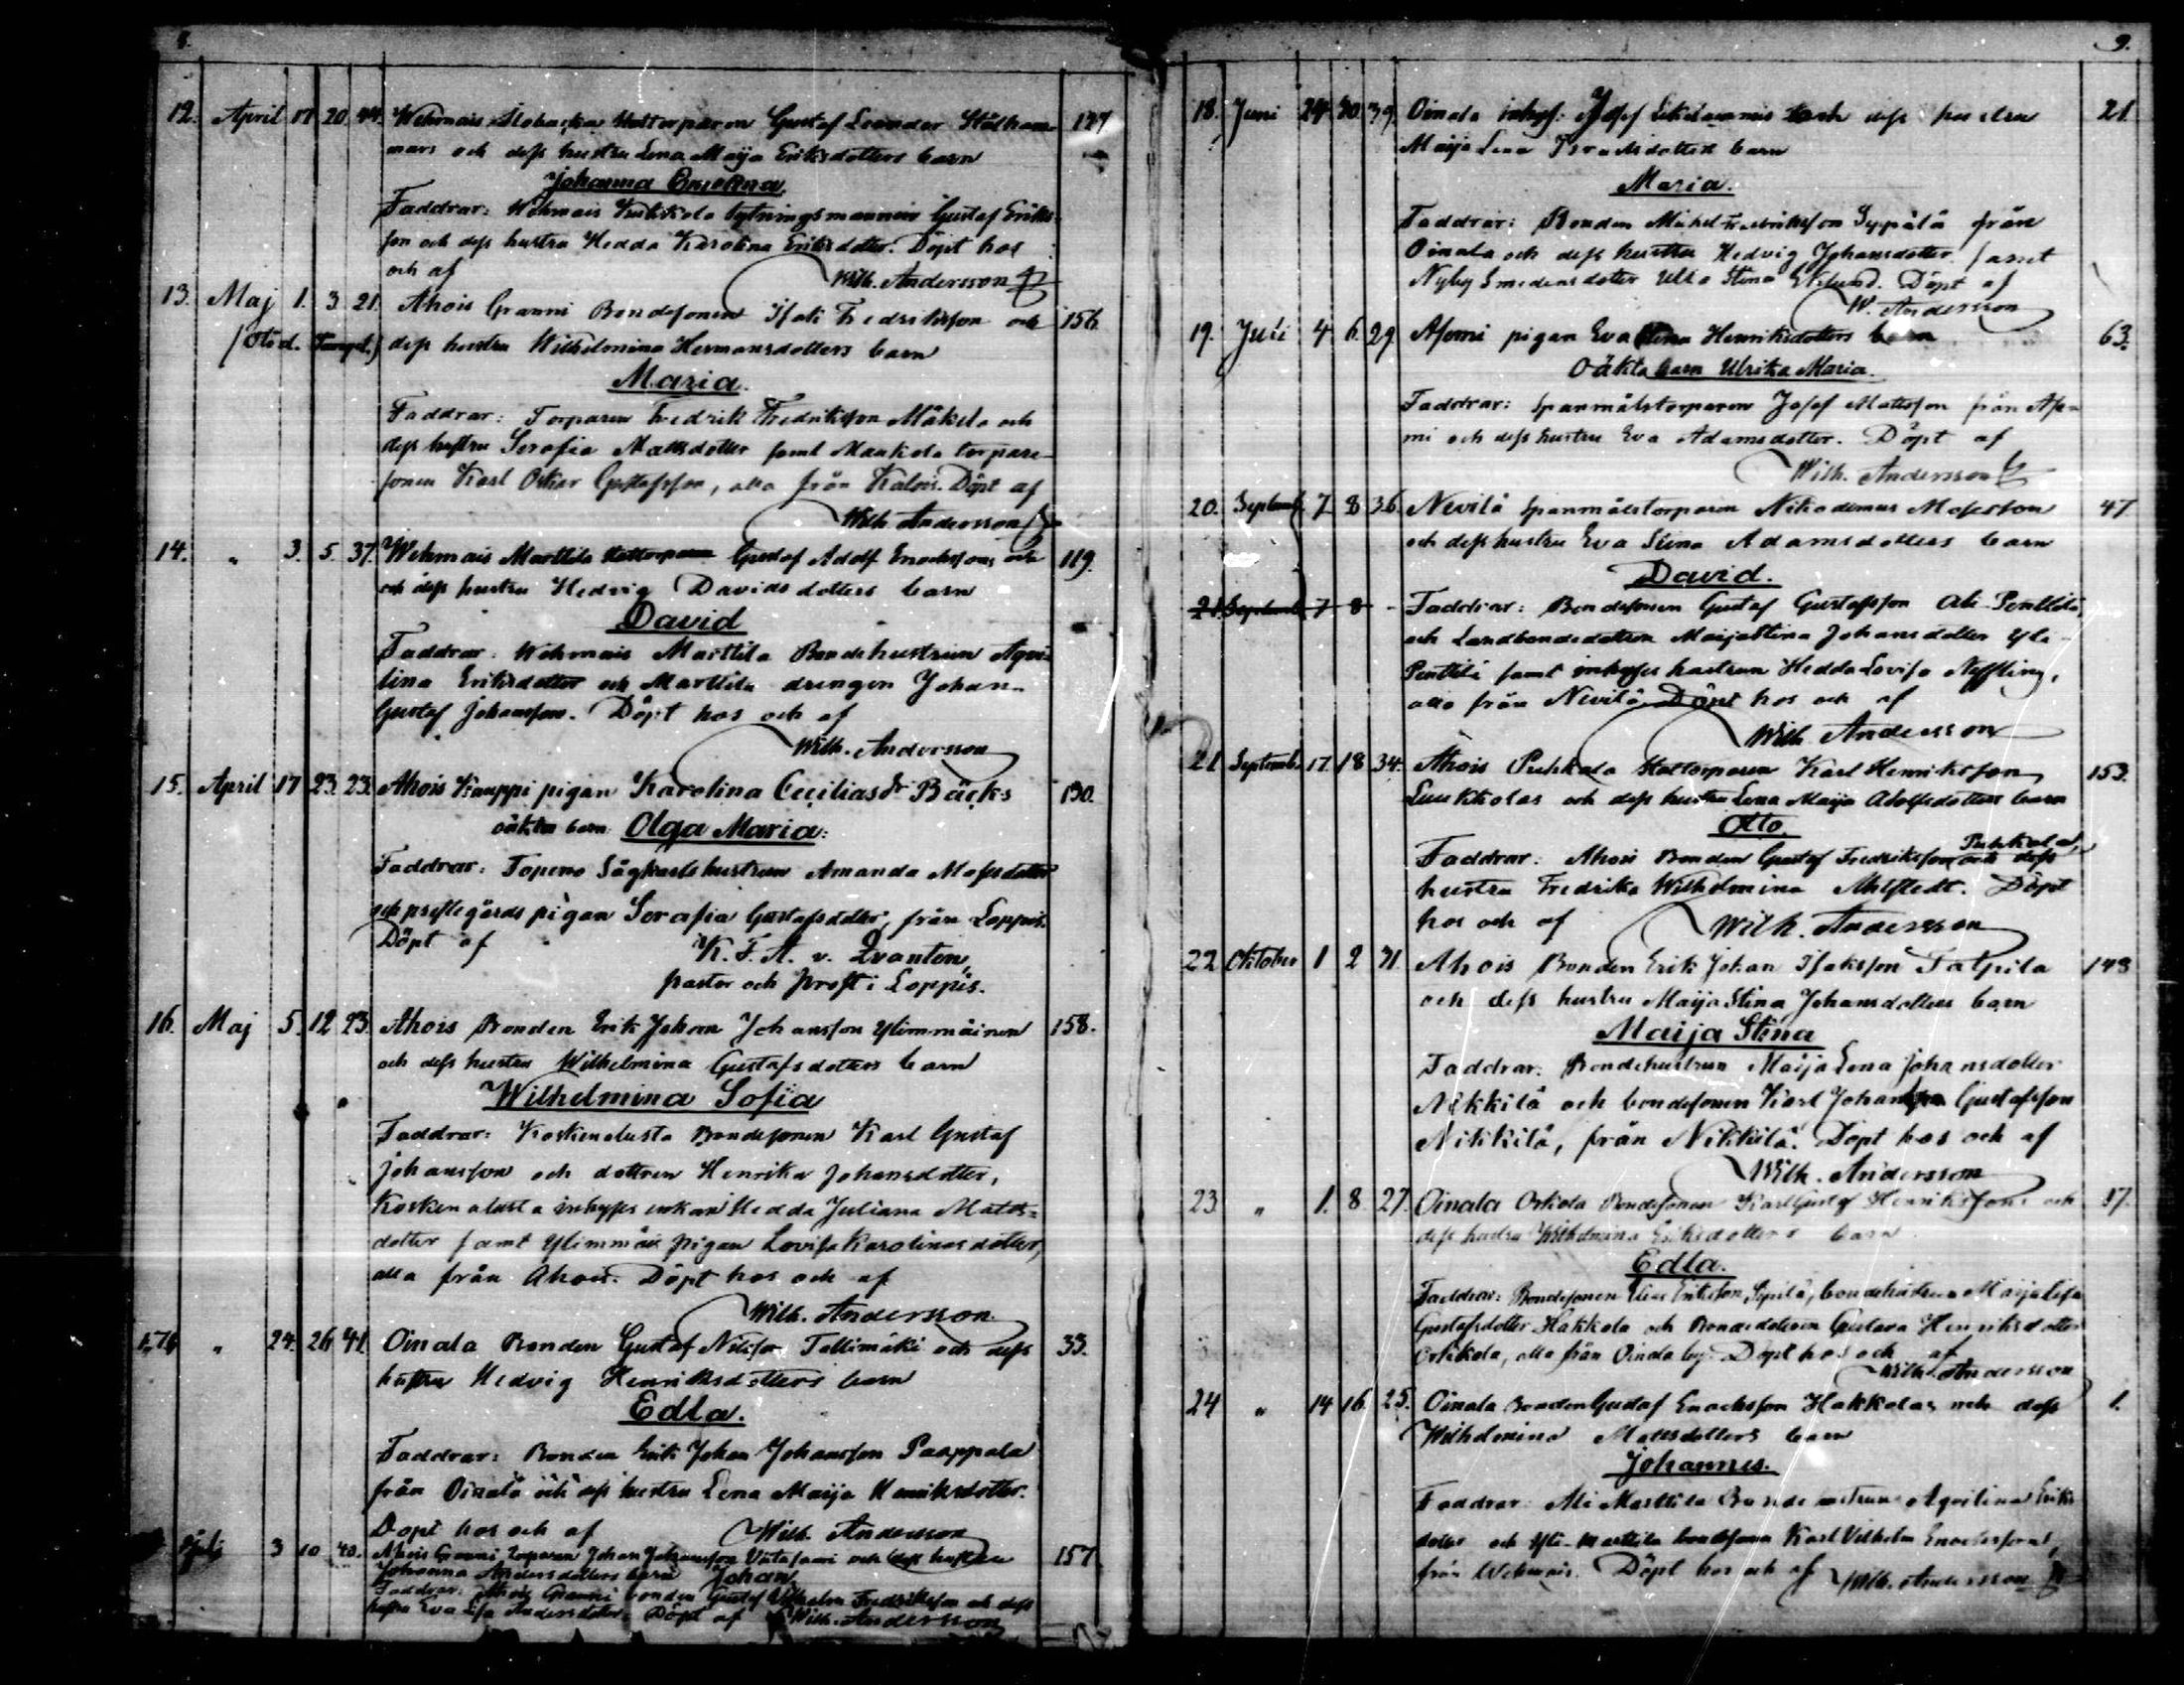 8.
12. April 17 20 44. Wehmais Slobacka Mattorparen Gustaf Leander Stålham-
mars och dess hustru Lena Maija Eriksdotters barn 147
Johanna Emelina.
Faddrar: Wehmais Kukkola bytningsmannen Gustaf Eriks-
son och dess hustru Hedda Karolina Eriksdotter. Döpt hos
och af Wilh. Andersson
13. Maj 1. 3 21. Ahois Granni Bondesonen Isak Fredriksson och 156.
dess hustru Wilhelmina Hermansdotters barn
Maria.
Faddrar: Torparen Fredrik Fredriksson Mäkelä och
dess hustru Serafia Mattsdotter samt Maukola torpare-
sonen Karl Oskar Gustafsson, alla från Kalois. Döpt af
Wilh. Andersson
14. " 3. 5. 37. Wehmais Marttila Gustaf Adolf Enochssons och 119.
och dess hustru Hedvig Davidsdotters barn
David
Faddrar: Wehmais Marttila Bondehustrun Aqvi-
lina Eriksdotter och Marttila drengen Johan
Gustaf Johansson. Döpt hos och af
Wilh. Andersson
15. April 17 23. 23. Ahois Kauppi pigan Karolina Ceciliasdr Bäcks 130.
oäkta barn Olga Maria:
Faddrar: Topeno Sågkarlshustrun Amanda Mosesdotter
och prestegårds pigan Serafia Gustafsdotter, från Loppis.
Döpt af K. F. A. v. Qvanten,
pastor och prost i Loppis.
16. Maj 5. 12 23. Ahois Bonden Erik Johan Johansson Ylimmäinen 158.
och dess hustru Wilhelmina Gustafsdotters barn
Wilhelmina Sofia
Faddrar: Koskenalusta Bondesonen Karl Gustaf
Johansson och dottren Henrika Johansdotter,
Koskenalusta inhyses enkan Hedda Juliana Matts-
dotter samt Ylimmäis pigan Lovisa Karolinasdotter,
alla från Ahois. Döpt hos och af
Wilh. Andersson.
17. " 24. 26 41. Oinala Bonden Gustaf Nilsson Tallimäki och dess 33.
hustru Hedvig Henriksdotters barn
Edla.
Faddrar: Bonden Erik Johan Johansson Paappala
från Oinala och dess hustru Lena Maija Henriksdotter.
Döpt hos och af Wilh. Andersson
3 10 40. Ahois Granni torparen Johan Johansson och dess hustru 157.
Johanna Andersdotters barn Johan.
Faddrar: Ahois Granni bonden Gustaf Wilhelm Fredriksson och dess
hustru Eva Lisa Andersdotter. Döpt af Wilh. Andersson
9.
18. Juni 24 30. 39. Oinala inhys: Josef och dess hustru 21.
Maija Lena Israelsdotters barn
Maria.
Faddrar: Bonden Mikel Fredriksson Seppälä från
Oinala och dess hustru Hedvig Johansdotter samt
Nyby Smedensdotter Ulla Stina Eklund. Döpt af
W. Andersson
19. Juli 4 6. 29. Asemi pigan Eva Stina Henriksdotters barn 63.
Oäkta barn Ulrika Maria.
Faddrar: Spanmålstorparen Josef Mattsson från Ase-
mi och dess hustru Eva Adamsdotter. Döpt af
Wilh. Andersson
20. September 7 8 36. Nevilä Spanmålstorparen Nikodemus Mosesson 47
och dess hustru Eva Stina Adamsdotters barn
David.
21. September 7 8 - Faddrar: Bondesonen Gustaf Gustafsson Ali-Penttilä,
och Landbondedottren Maija Stina Johansdotter Yli-
Penttilä samt inhyses hustrun Hedda Lovisa
alla från Nevilä. Döpt hos och af
Wilh. Andersson
21 September 17. 18 34. Ahois Puhkala Mattorparen Karl Henriksson 153.
Luukkolas och dess hustru Lena Maija Adolfsdotters barn
Otto.
Puhkala,
Faddrar: Ahois Bonden Gustaf Fredriksson och dess
hustru Fredrika Wilhelmina Ahlstedt. Döpt
hos och af Wilh. Andersson
22 Oktober 1 2 31. Ahois Bonden Erik Johan Isaksson Talpila 148
och dess hustru Maija Stina Johansdotters barn
Maija Stina
Faddrar: Bondehustrun Maija Lena Johansdotter
Nikkilä och bondesonen Karl Johan Gustafsson
Nikkilä, från Nikkilä. Döpt hos och af
Wilh. Andersson
23 " 1. 8. 27. Oinala Orkola Bondesonen Karl Gustaf Henrikssons och 37.
dess hustru Wilhelmina Eriksdotters barn
Edla.
Faddrar: Bondesonen Elias Eriksson Sipilä, bondehustrun Maija Lisa
Gustafsdotter Hakkola och Bondedottren Gustava Henriksdotter
Orkola, alla från Oinala by. Döpt hos och af
Wilh. Andersson
24 " 14 16. 25. Oinala Bonden Gustaf Enochsson Hakkolas och dess 1.
Wilhelmina Mattsdotters barn
Johannes.
Faddrar: Ali Marttila Bondehustrun Aqvilina Eriks
dotter och Yli-Marttila bondesonen Karl Vilhelm Enochsson,
från Wehmais. Döpt hos och af Wilh. Andersson